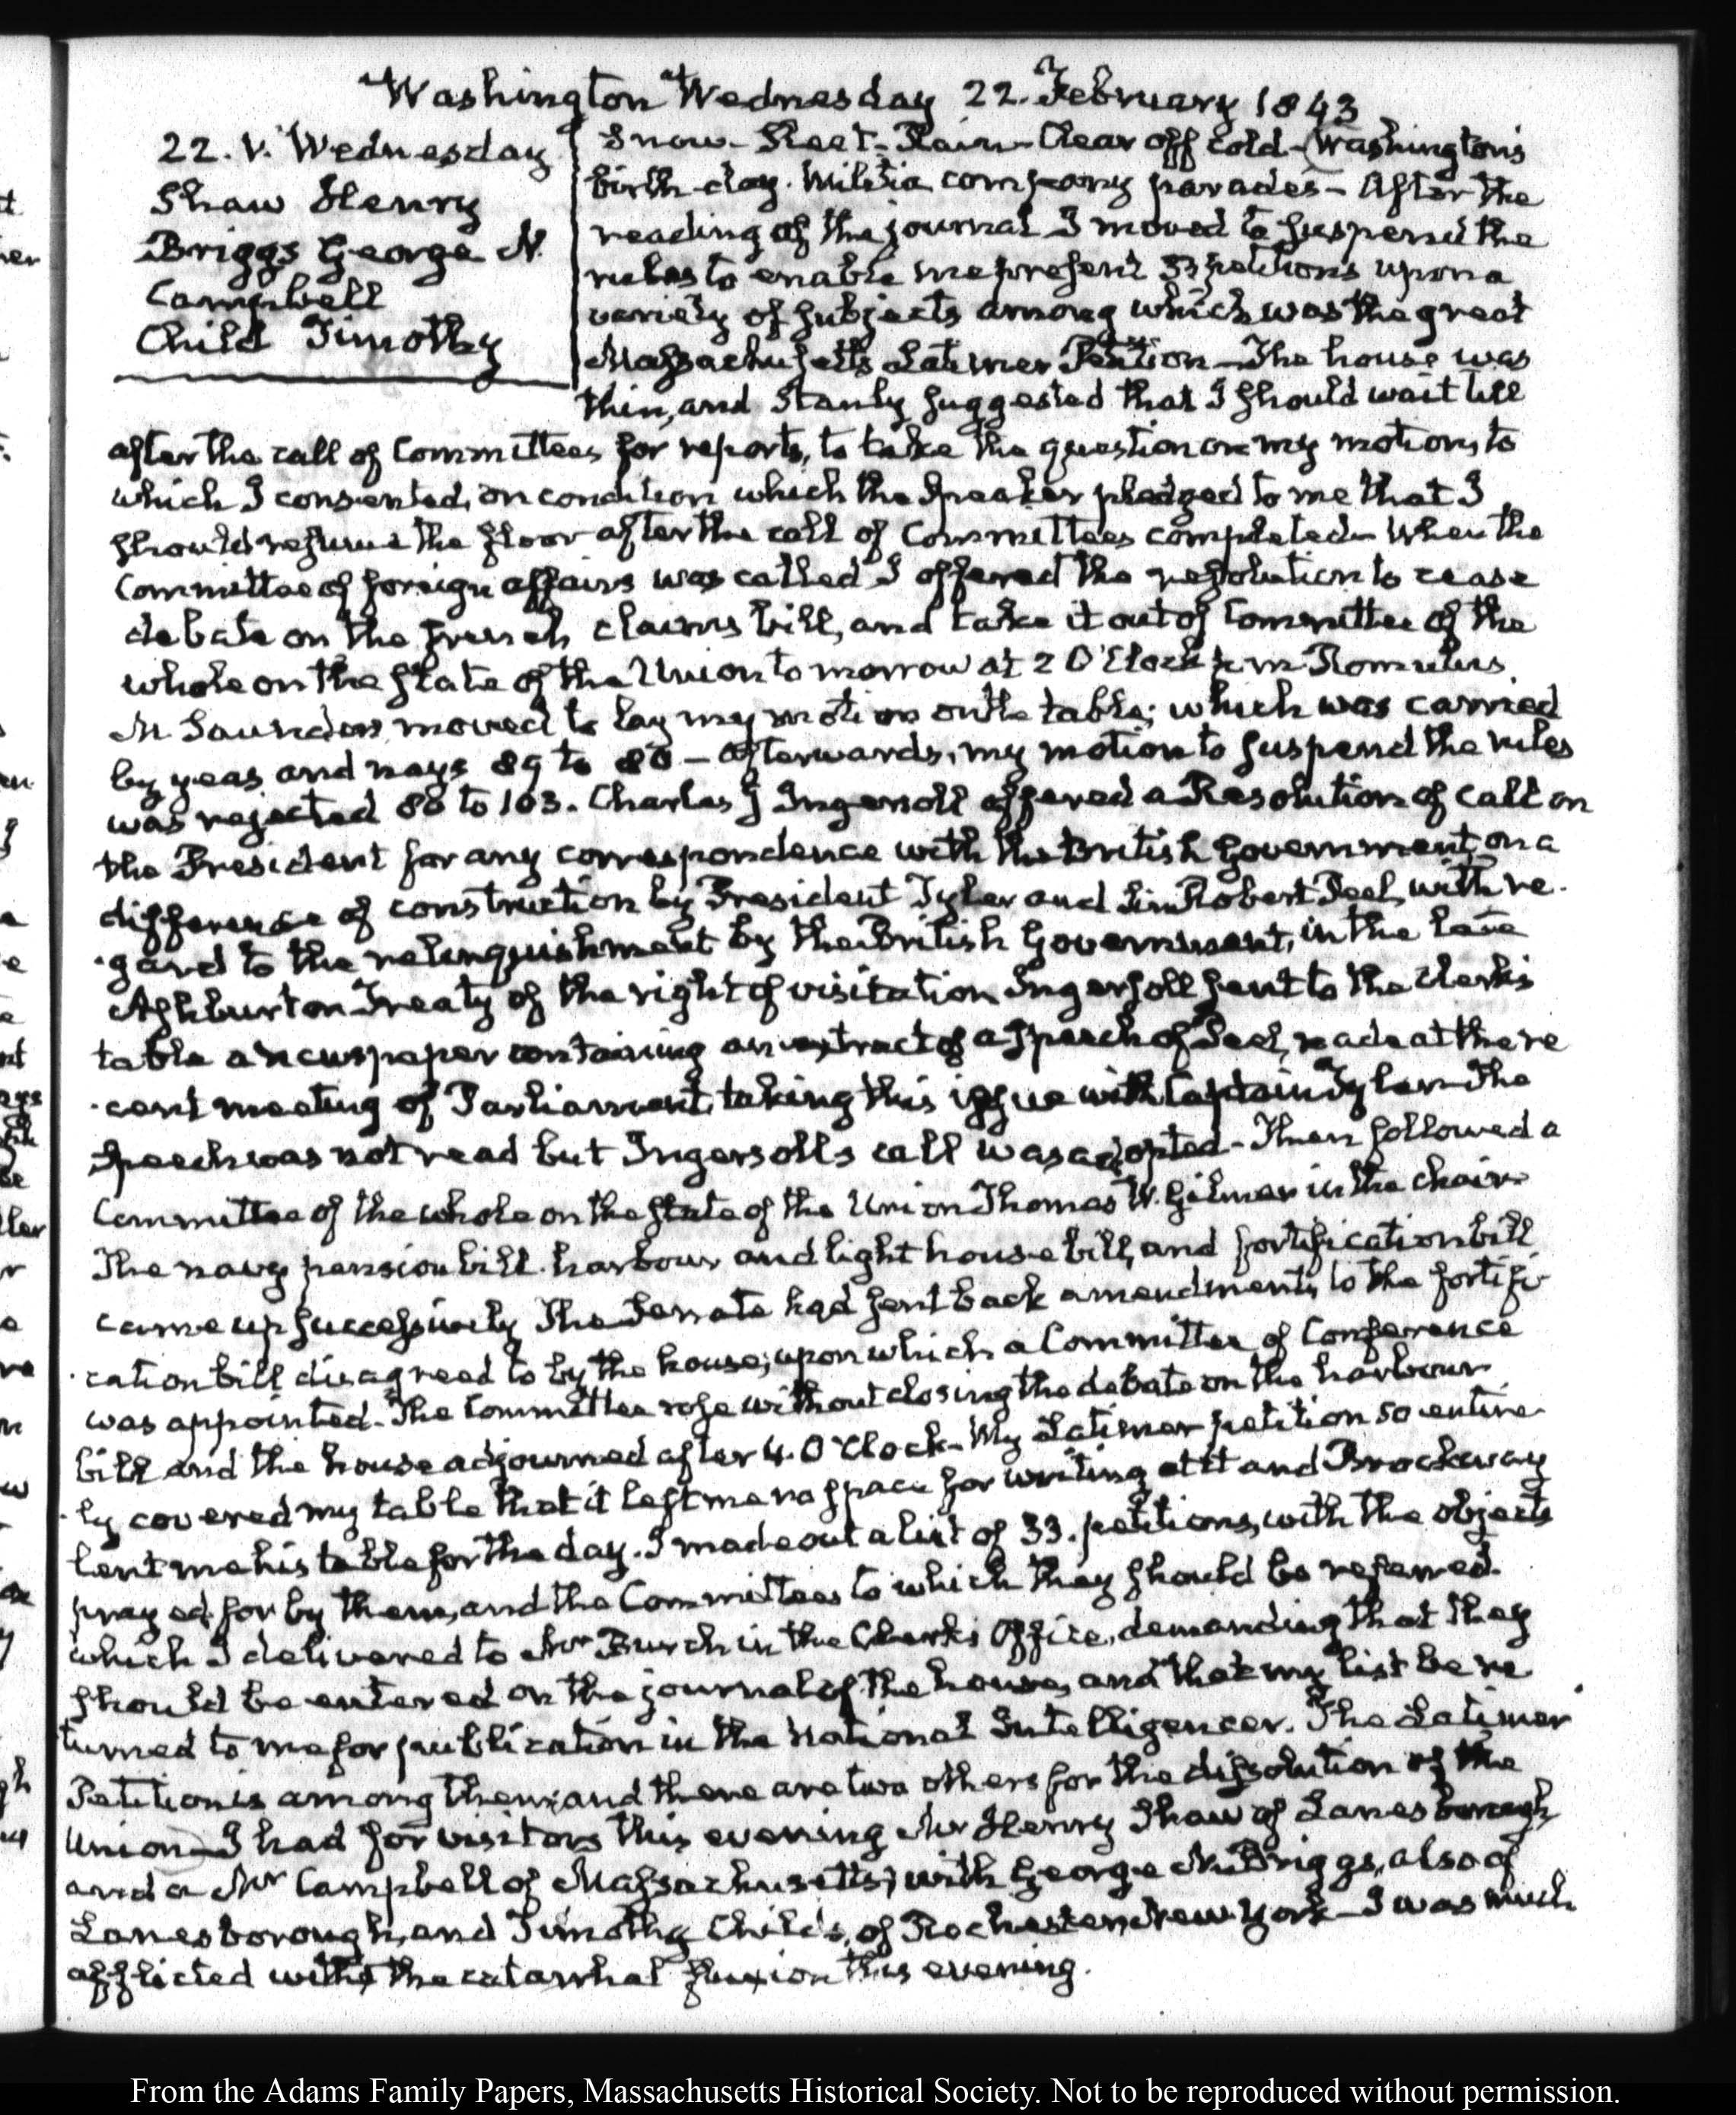 Washington Wednesday 22. February 1843
22. V. Wednesday
Shaw Henry
Briggs George N.
Campbell
Child Timothy
Snow- Sleet- Rain- Clear off cold- Washington's
birth-day. Militia company parades- After the
reading of the journal I moved to suspend the
rules to enable me present 33 petitions upon a
variety of subjects among which was the great
Massachusetts Latimer Petition- The house was
thin, and Stanly suggested that I should wait till
after the call of Committees for reports, to take the question on my motion, to
which I consented, on condition which the Speaker pledged to me that I
should resume the floor after the call of Committees completed- When the
Committee of foreign affairs was called I offered the resolution to cease
debate on the French claims bill, and take it out of Committee of the
whole on the State of the Union to morrow at 2 O'Clock p.m. Romulus
M Saunders moved to lay my motion on the table; which was carried
by yeas and nays 89 to 80 - afterwards, my motion to suspend the rules
was rejected 80 to 103. Charles J Ingersoll offered a Resolution of call on
the President for any correspondence with the British Government on a
difference of construction by President Tyler and Sir Robert Peel, with re-
-gard to the relinquishment by the British Government, in the late
Ashburton Treaty of the right of visitation Ingersoll sent to the Clerk's
table a newspaper containing an extract of a Speech of Peel, made at the re
-cent meeting of Parliament, taking this issue with Captain Tyler- The
Speech was not read but Ingersolls call was adopted- Then followed a
Committee of the whole on the State of the Union Thomas W. Gilmer in the chair
The navy pension bill. harbour and light house bill, and fortification bill
came up successively The Senate had sent back amendments to the fortifi-
-cation bill disagreed to by the house; upon which a Committee of Conference
was appointed- The Committee rose without closing the debate on the harbour
bill and the house adjourned after 4. O'Clock- My Latimer petition so entire-
-ly covered my table that it left me no space for writing at it and Brockway
lent me his table for the day. I made out a list of 33. petitions, with the objects
prayed for by them, and the Committees to which they should be referred.
which I delivered to Mr Burch in the Clerk's Office, demanding that they
should be entered on the journal of the house, and that my list be re
turned to me for publication in the National Intelligencer. The Latimer
Petition is among them, and there are two others for the dissolution of the
Union- I had for visitors this evening Mr Henry Shaw of Lanesborough
and a Mr Campbell of Massachusetts; with George N. Briggs, also of
Lanesborough, and Timothy Childs, of Rochester, New York- I was much
afflicted with the catarrhal fluxion this evening.
From the Adams Family Papers, Massachusetts Historical Society. Not to be reproduced without permission.